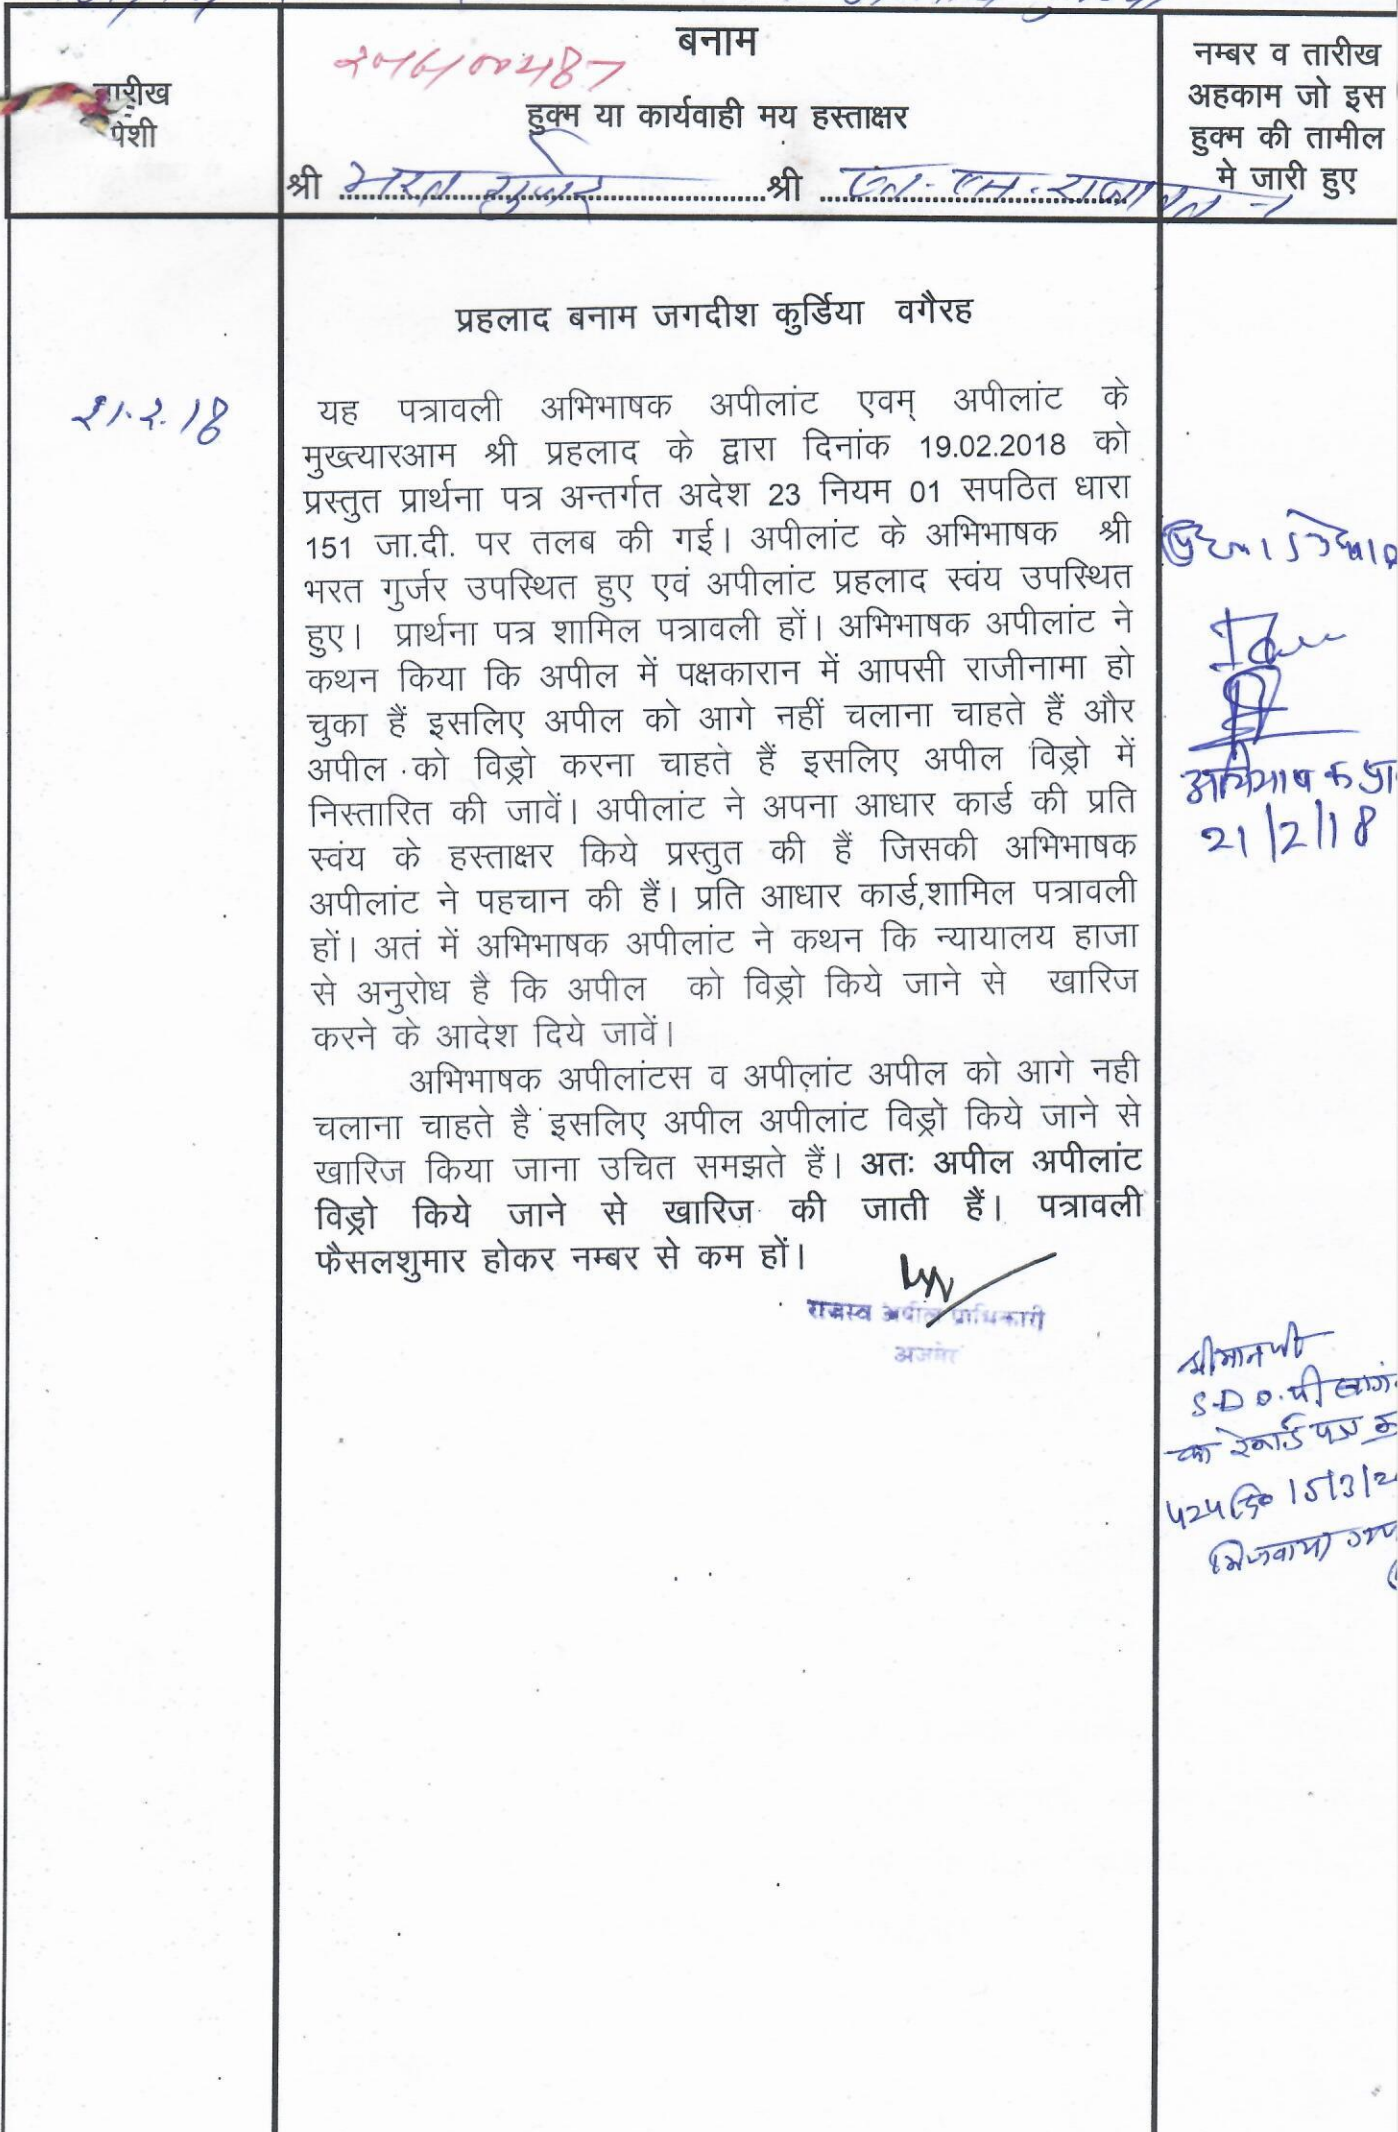 बनाम
तारीख
पेशी
हुक्म या कार्यवाही मय हस्ताक्षर
श्री भरत गुर्जर श्री एन. एस. राजावत
नम्बर व तारीख
अहकाम जो इस
हुक्म की तामील
मे जारी हुए
प्रहलाद बनाम जगदीश कुर्डिया वगैरह
21.2.18
यह पत्रावली अभिभाषक अपीलांट एवम् अपीलांट के
मुख्त्यारआम श्री प्रहलाद के द्वारा दिनांक 19.02.2018 को
प्रस्तुत प्रार्थना पत्र अन्तर्गत अदेश 23 नियम 01 सपठित धारा
151 जा.दी. पर तलब की गई। अपीलांट के अभिभाषक श्री
भरत गुर्जर उपस्थित हुए एवं अपीलांट प्रहलाद स्वंय उपस्थित
हुए। प्रार्थना पत्र शामिल पत्रावली हों। अभिभाषक अपीलांट ने
कथन किया कि अपील में पक्षकारान में आपसी राजीनामा हो
चुका हैं इसलिए अपील को आगे नहीं चलाना चाहते हैं और
अपील को विड्रो करना चाहते हैं इसलिए अपील विड्रो में
निस्तारित की जावें। अपीलांट ने अपना आधार कार्ड की प्रति
स्वंय के हस्ताक्षर किये प्रस्तुत की हैं जिसकी अभिभाषक
अपीलांट ने पहचान की हैं। प्रति आधार कार्ड,शामिल पत्रावली
हों। अतं में अभिभाषक अपीलांट ने कथन कि न्यायालय हाजा
से अनुरोध है कि अपील को विड्रो किये जाने से खारिज
करने के आदेश दिये जावें।
अभिभाषक अपीलांटस व अपीलांट अपील को आगे नही
चलाना चाहते है इसलिए अपील अपीलांट विड्रो किये जाने से
खारिज किया जाना उचित समझते हैं। अतः अपील अपीलांट
विड्रो किये जाने से खारिज की जाती हैं। पत्रावली
फैसलशुमार होकर नम्बर से कम हों।
राजस्व अपील प्राधिकारी
अजमेर
अभिभाषक
21/2/18
श्रीमान जी
S.D.O.
का रेकार्ड पत्र
15/3/2
भिजवाया